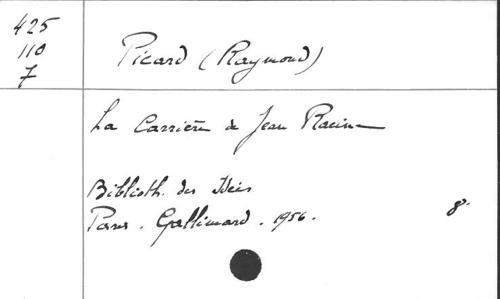 425
110
7
Picard (Raymond)
La Carrière de Jean Racine
Biblioth. des Idées
Paris. Gallimard. 1956.
8°